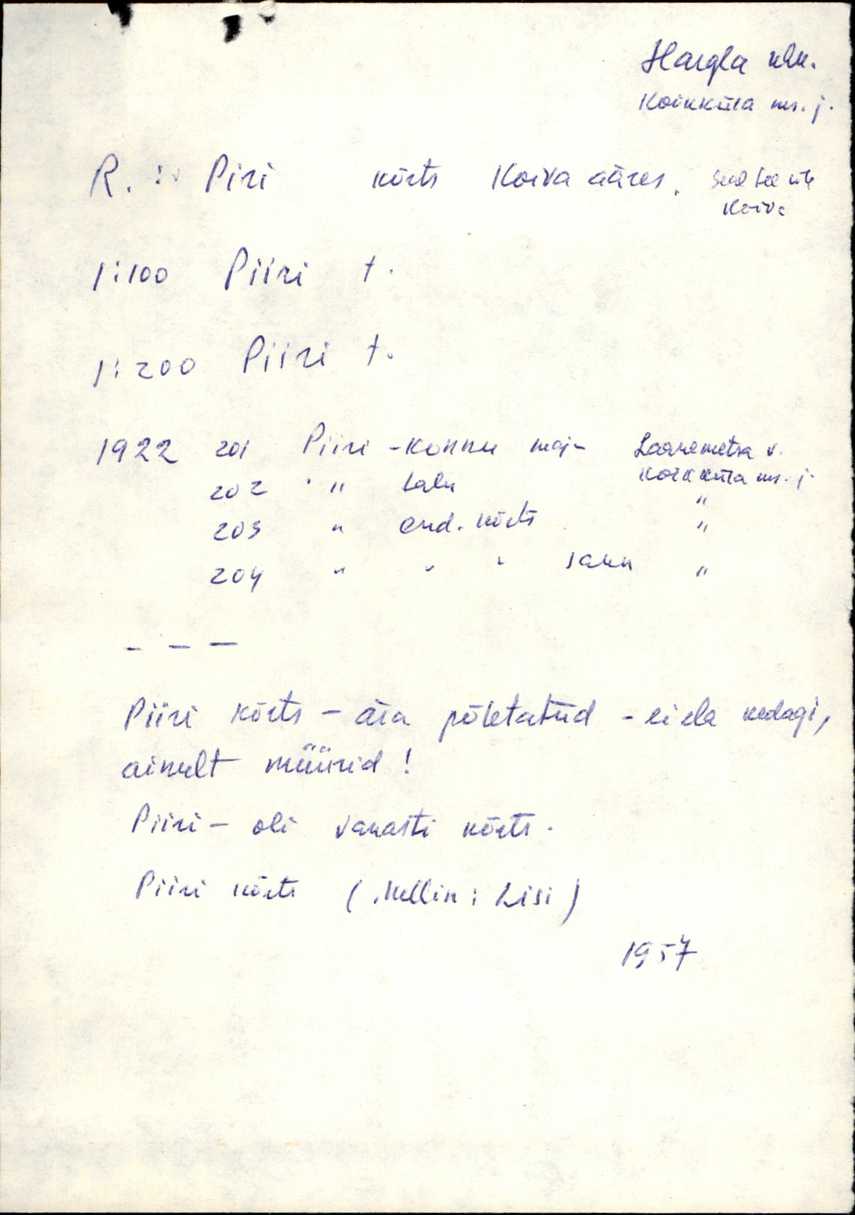 Hargla khk.
Koikküla ms. j.
R.: Piri kõrts Koiva ääres.
Koiva
1:100 Piiri t.
1:200 Piiri t.
1922 201 Piiri - konnu maj- Laanemetsa v.
202 " talu Koikküla ms. j.
203 " end. kõrts "
204 " " " saun "
- - -
Piiri kõrts - ära põletatud - ei ela kedagi,
ainult müürid!
Piiri - oli vanasti kõrts.
Piiri kõrts (Mellin: Lisi)
1957